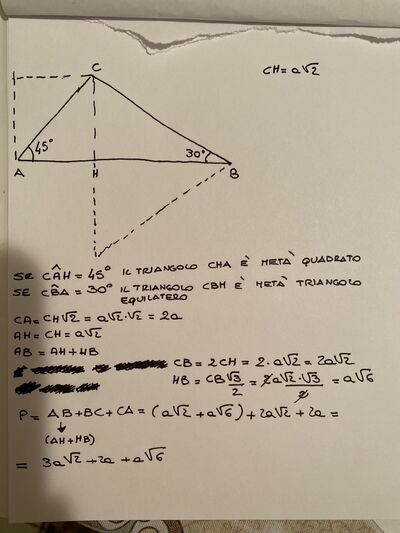 C
CH = a√2
45°
30°
A
H
B
SE CÂH = 45° IL TRIANGOLO CHA È METÀ QUADRATO
SE CB̂A = 30° IL TRIANGOLO CBH È METÀ TRIANGOLO
EQUILATERO
CA = CH√2 = a√2·√2 = 2a
AH = CH = a√2
AB = AH + HB
CB = 2CH = 2·a√2 = 2a√2
HB = CB√3/2 = 2a√2·√3/2 = a√6
P = AB + BC + CA = (a√2 + a√6) + 2a√2 + 2a =
↓
(AH + HB)
= 3a√2 + 2a + a√6